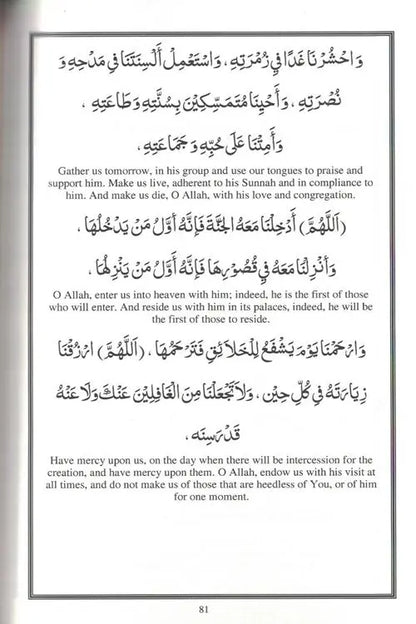 وَاحْشُرْنَا غَدًا فِي زُمْرَتِهِ ، وَاسْتَعْمِلْ أَلْسِنَتَنَا فِي مَدْحِهِ وَ
نُصْرَتِهِ ، وَأَحْيِنَا مُتَمَسِّكِيْنَ بِسُنَّتِهِ وَطَاعَتِهِ ،
وَأَمِتْنَا عَلَى حُبِّهِ وَجَمَاعَتِهِ ،
Gather us tomorrow, in his group and use our tongues to praise and
support him. Make us live, adherent to his Sunnah and in compliance to
him. And make us die, O Allah, with his love and congregation.
(اَللّٰهُمَّ) أَدْخِلْنَا مَعَهُ الْجَنَّةَ فَإِنَّهُ أَوَّلُ مَنْ يَدْخُلُهَا ،
وَأَنْزِلْنَا مَعَهُ فِي قُصُوْرِهَا فَإِنَّهُ أَوَّلُ مَنْ يَنْزِلُهَا ،
O Allah, enter us into heaven with him; indeed, he is the first of those
who will enter. And reside us with him in its palaces, indeed, he will be
the first of those to reside.
وَارْحَمْنَا يَوْمَ يَشْفَعُ لِلْخَلَائِقِ فَتَرْحَمُهَا ، (اَللّٰهُمَّ) ارْزُقْنَا
زِيَارَتَهُ فِي كُلِّ حِيْنٍ ، وَلَا تَجْعَلْنَا مِنَ الْغَافِلِيْنَ عَنْكَ وَلَا عَنْهُ
قَدْرَ سَنَةٍ ،
Have mercy upon us, on the day when there will be intercession for the
creation, and have mercy upon them. O Allah, endow us with his visit at
all times, and do not make us of those that are heedless of You, or of him
for one moment.
81